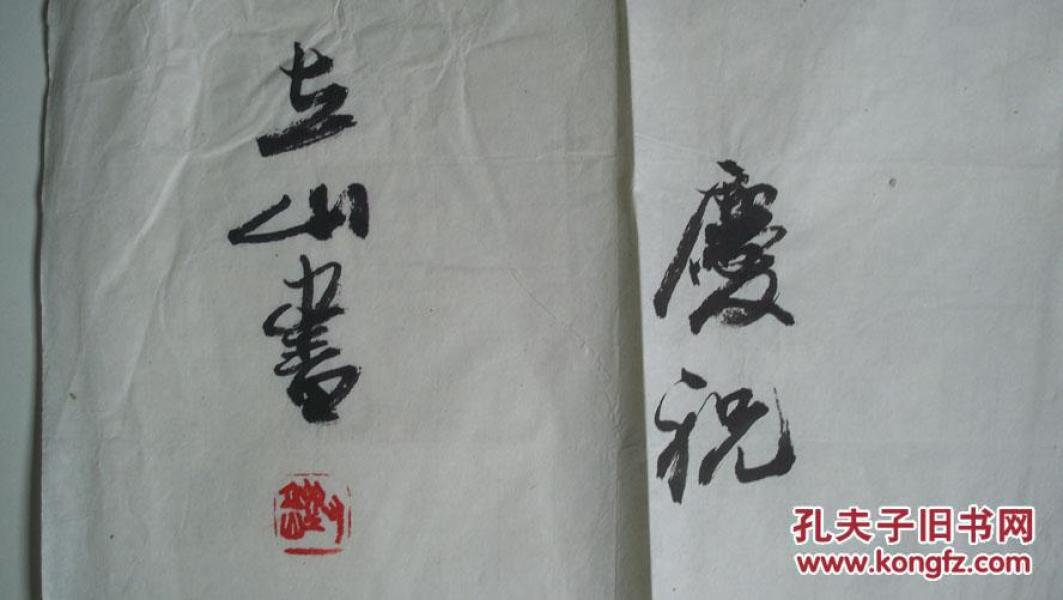 慶祝
立山書
孔夫子旧书网
www.kongfz.com